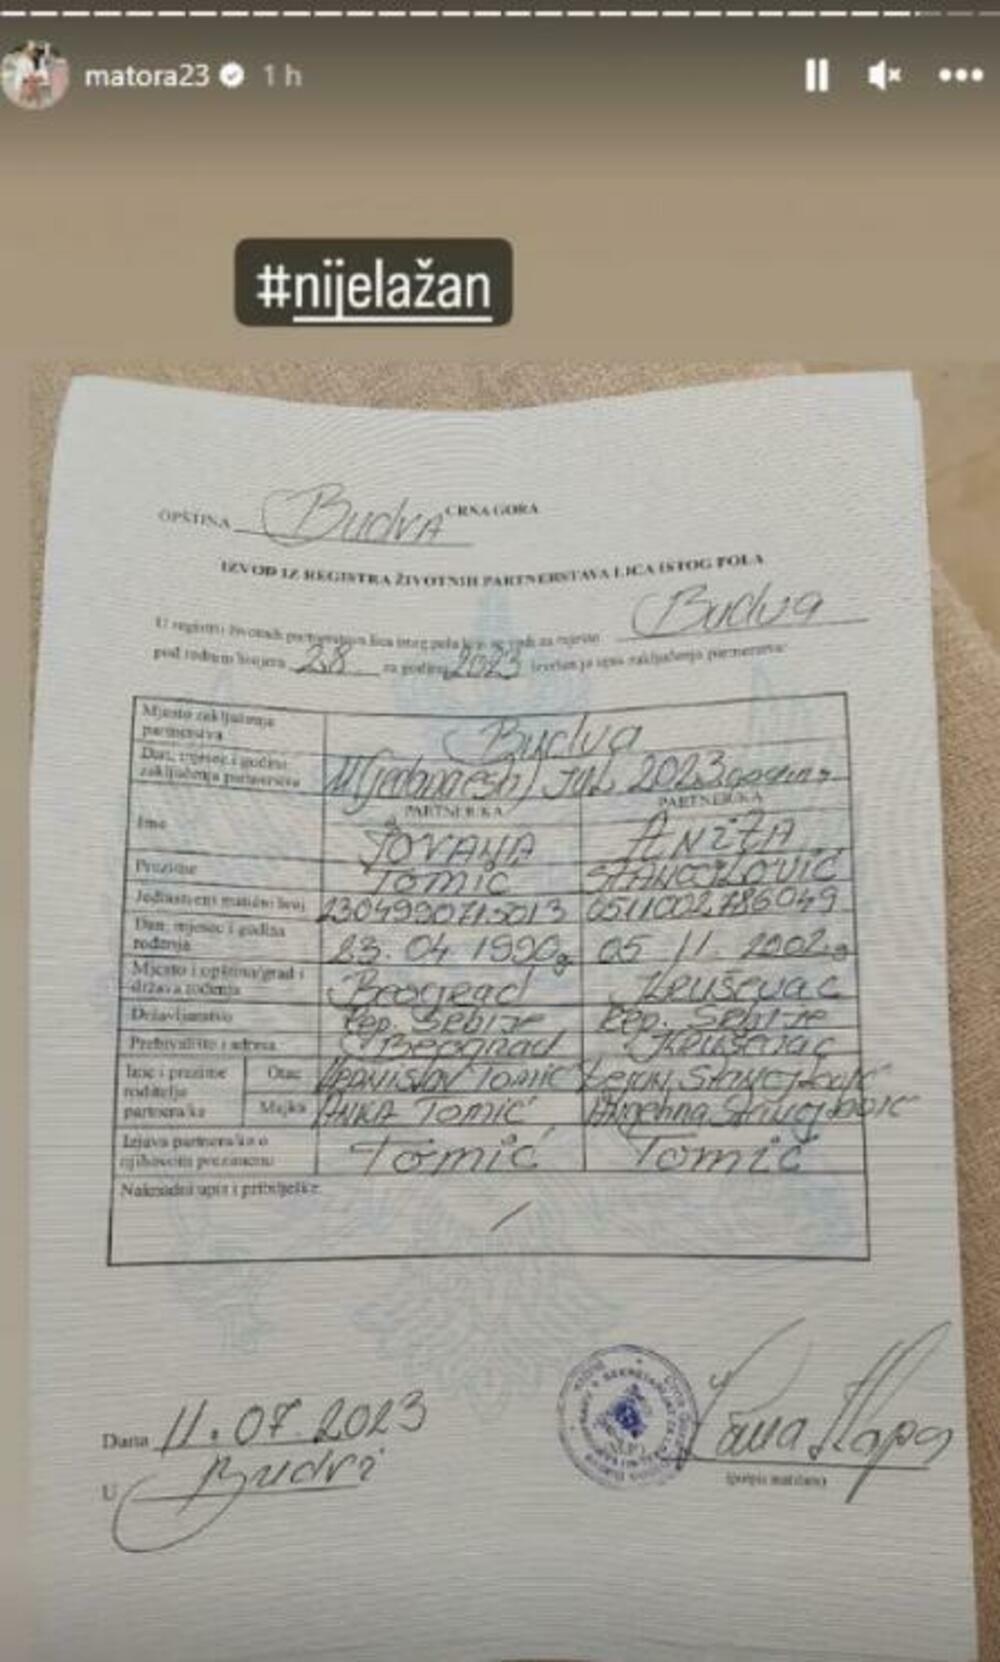 matora23 1 h
#nijelažan
CRNA GORA
OPŠTINA Budva
IZVOD IZ REGISTRA ŽIVOTNIH PARTNERSTAVA LICA ISTOG POLA
U registru životnih partnerstava lica istog pola koji se vodi za mjesto Budva
pod rednim brojem 28 za godinu 2023 izvršen je upis zaključenja partnerstva:
Mjesto zaključenja partnerstva Budva
Dan, mjesec i godina zaključenja partnerstva jul 2023 godine
PARTNER/KA PARTNER/KA
Ime JOVANA ANITA
Prezime TOMIĆ STANOJLOVIĆ
Jedinstveni matični broj
Dan, mjesec i godina rođenja 23. 04 1990g 05 11. 2002.g
Mjesto i opština/grad i država rođenja Beograd Kruševac
Državljanstvo Rep. Srbije Rep. Srbije
Prebivalište i adresa Beograd Kruševac
Ime i prezime roditelja partnera/ke
Otac Tomić
Majka ANKA TOMIĆ
Izjava partnera/ke o njihovom prezimenu Tomić Tomić
Naknadni upis i pribilješke:
/
Dana 11.07.2023
U Budvi
(potpis matičara)